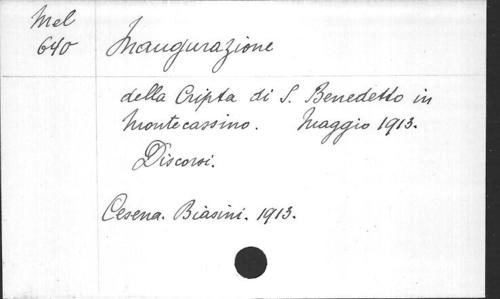 Mel
640
Inaugurazione
della Cripta di S. Benedetto in
Montecassino. Maggio 1913.
Discorsi.
Cesena. Biasini. 1913.